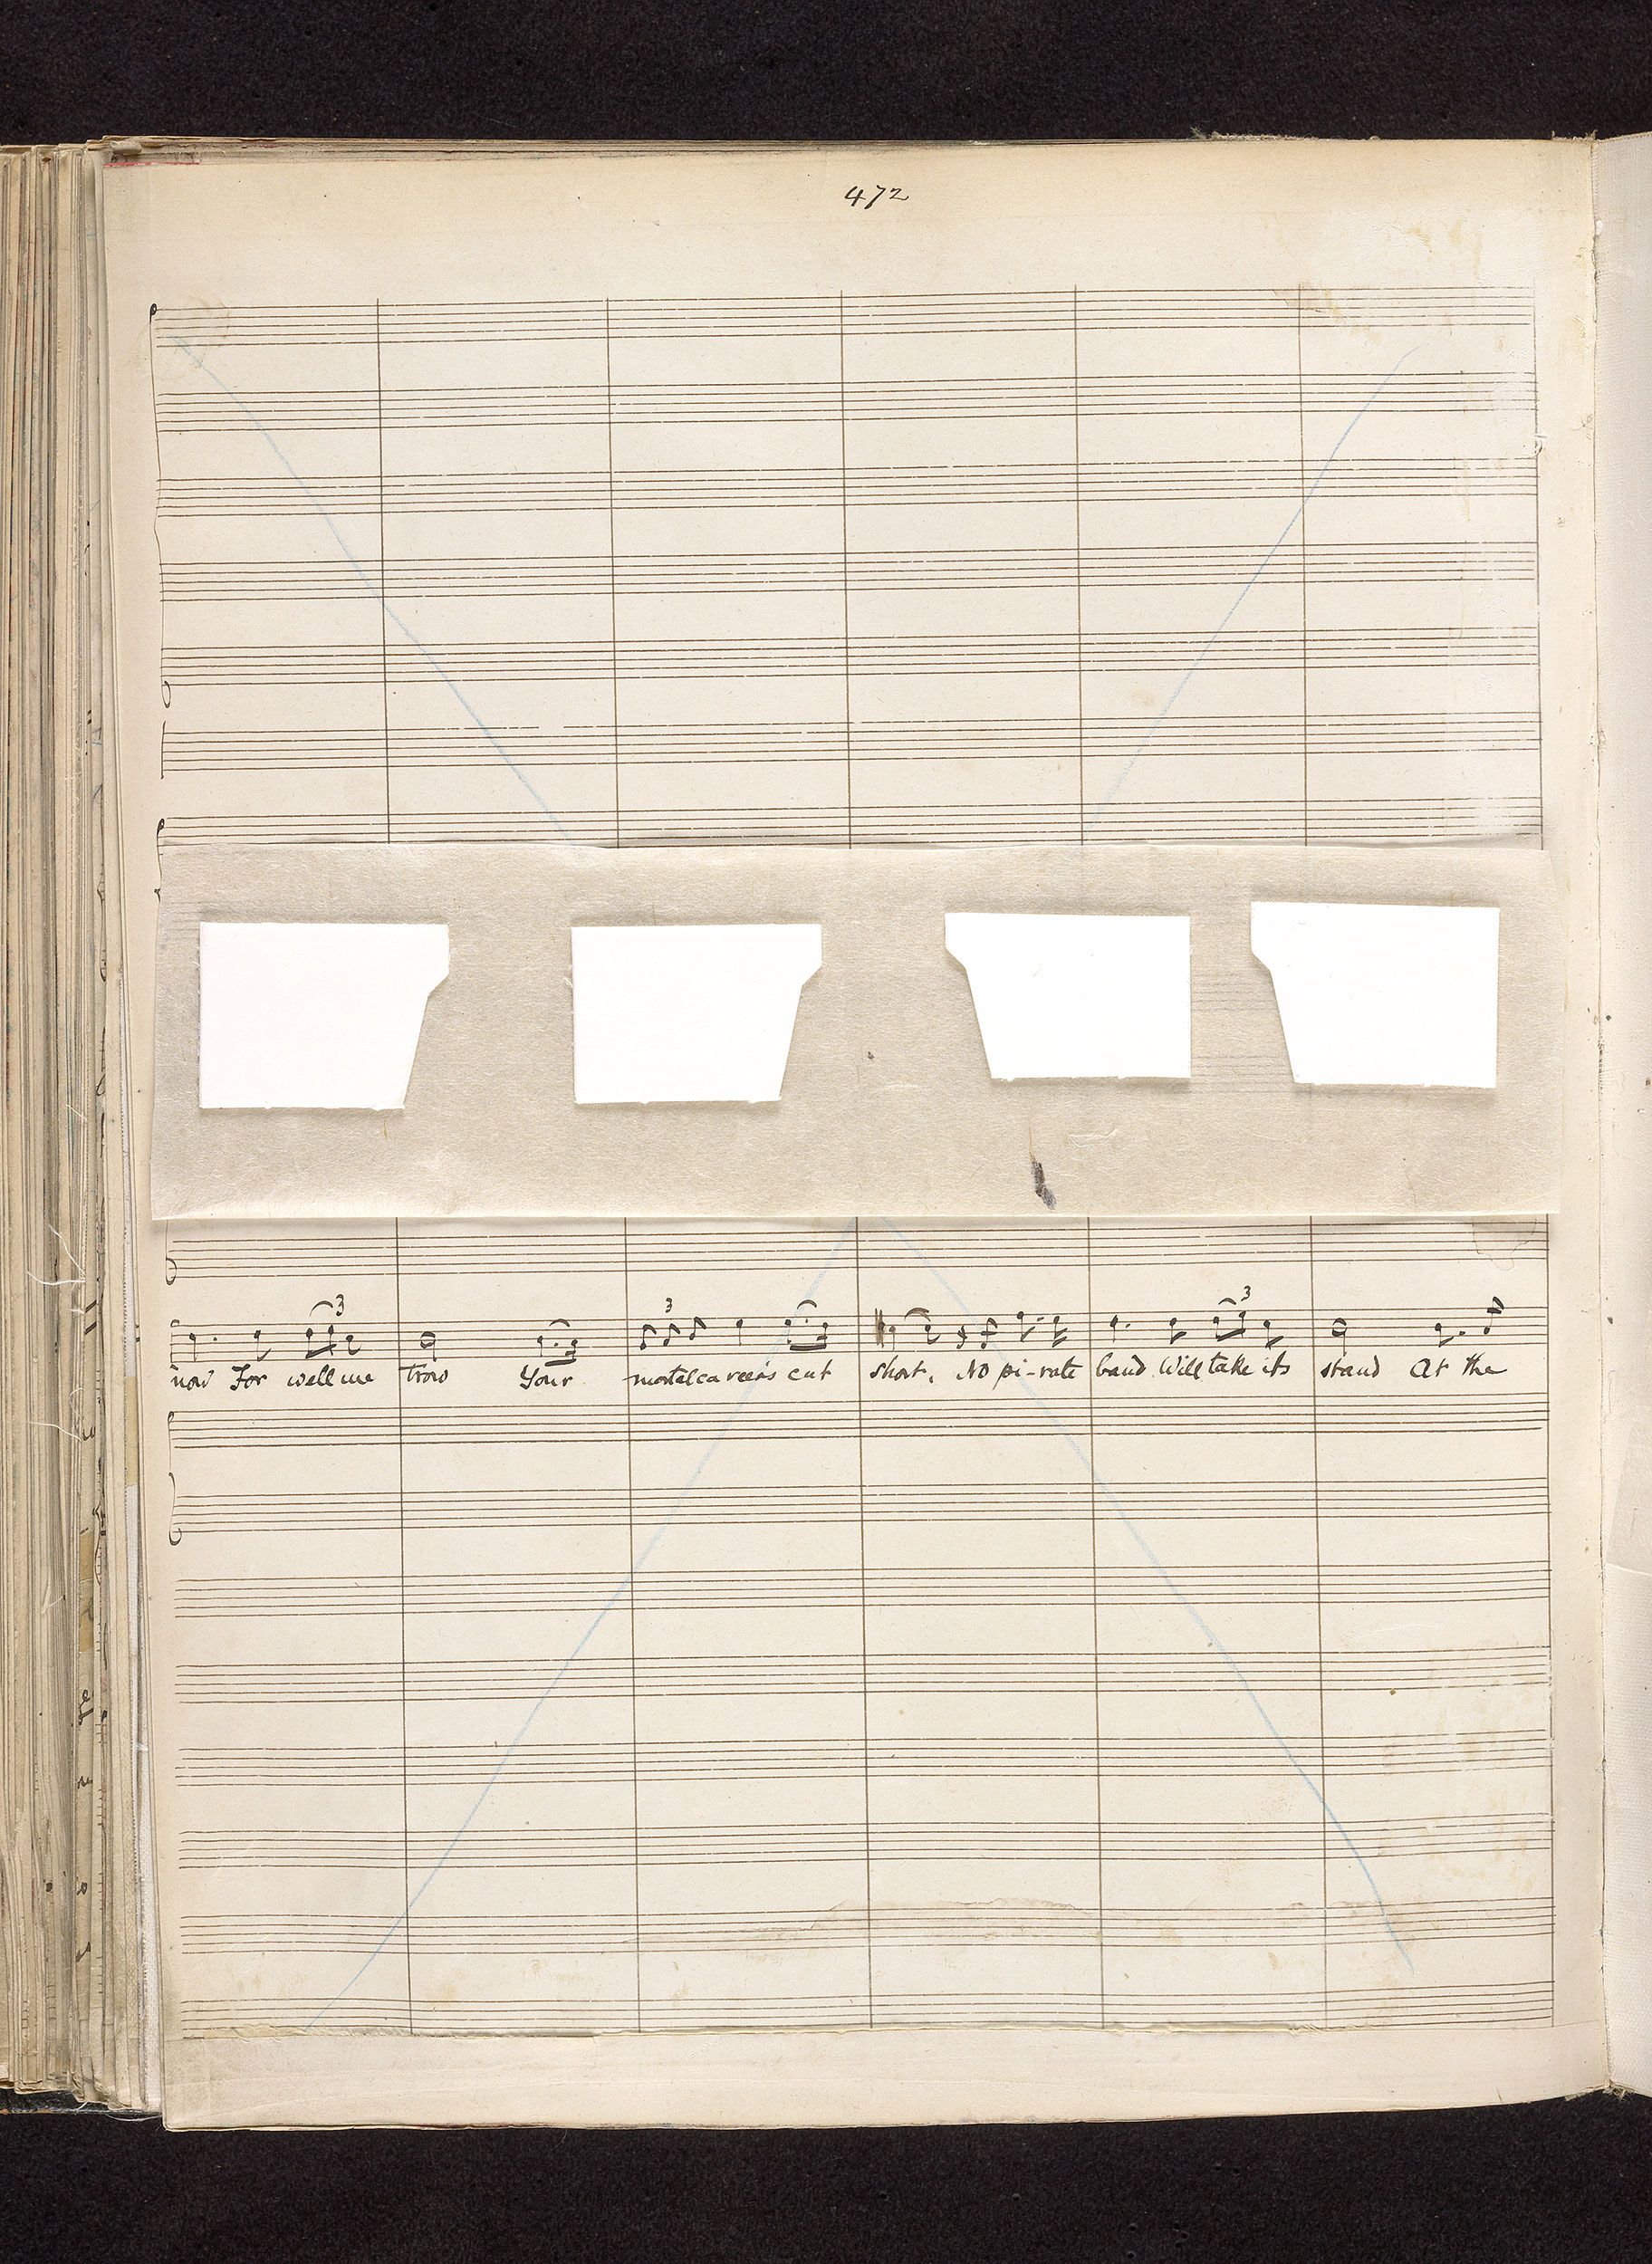 472
3
3
3
now For well we trow Your mortal career's cut short, No pi-rate band Will take its stand At the